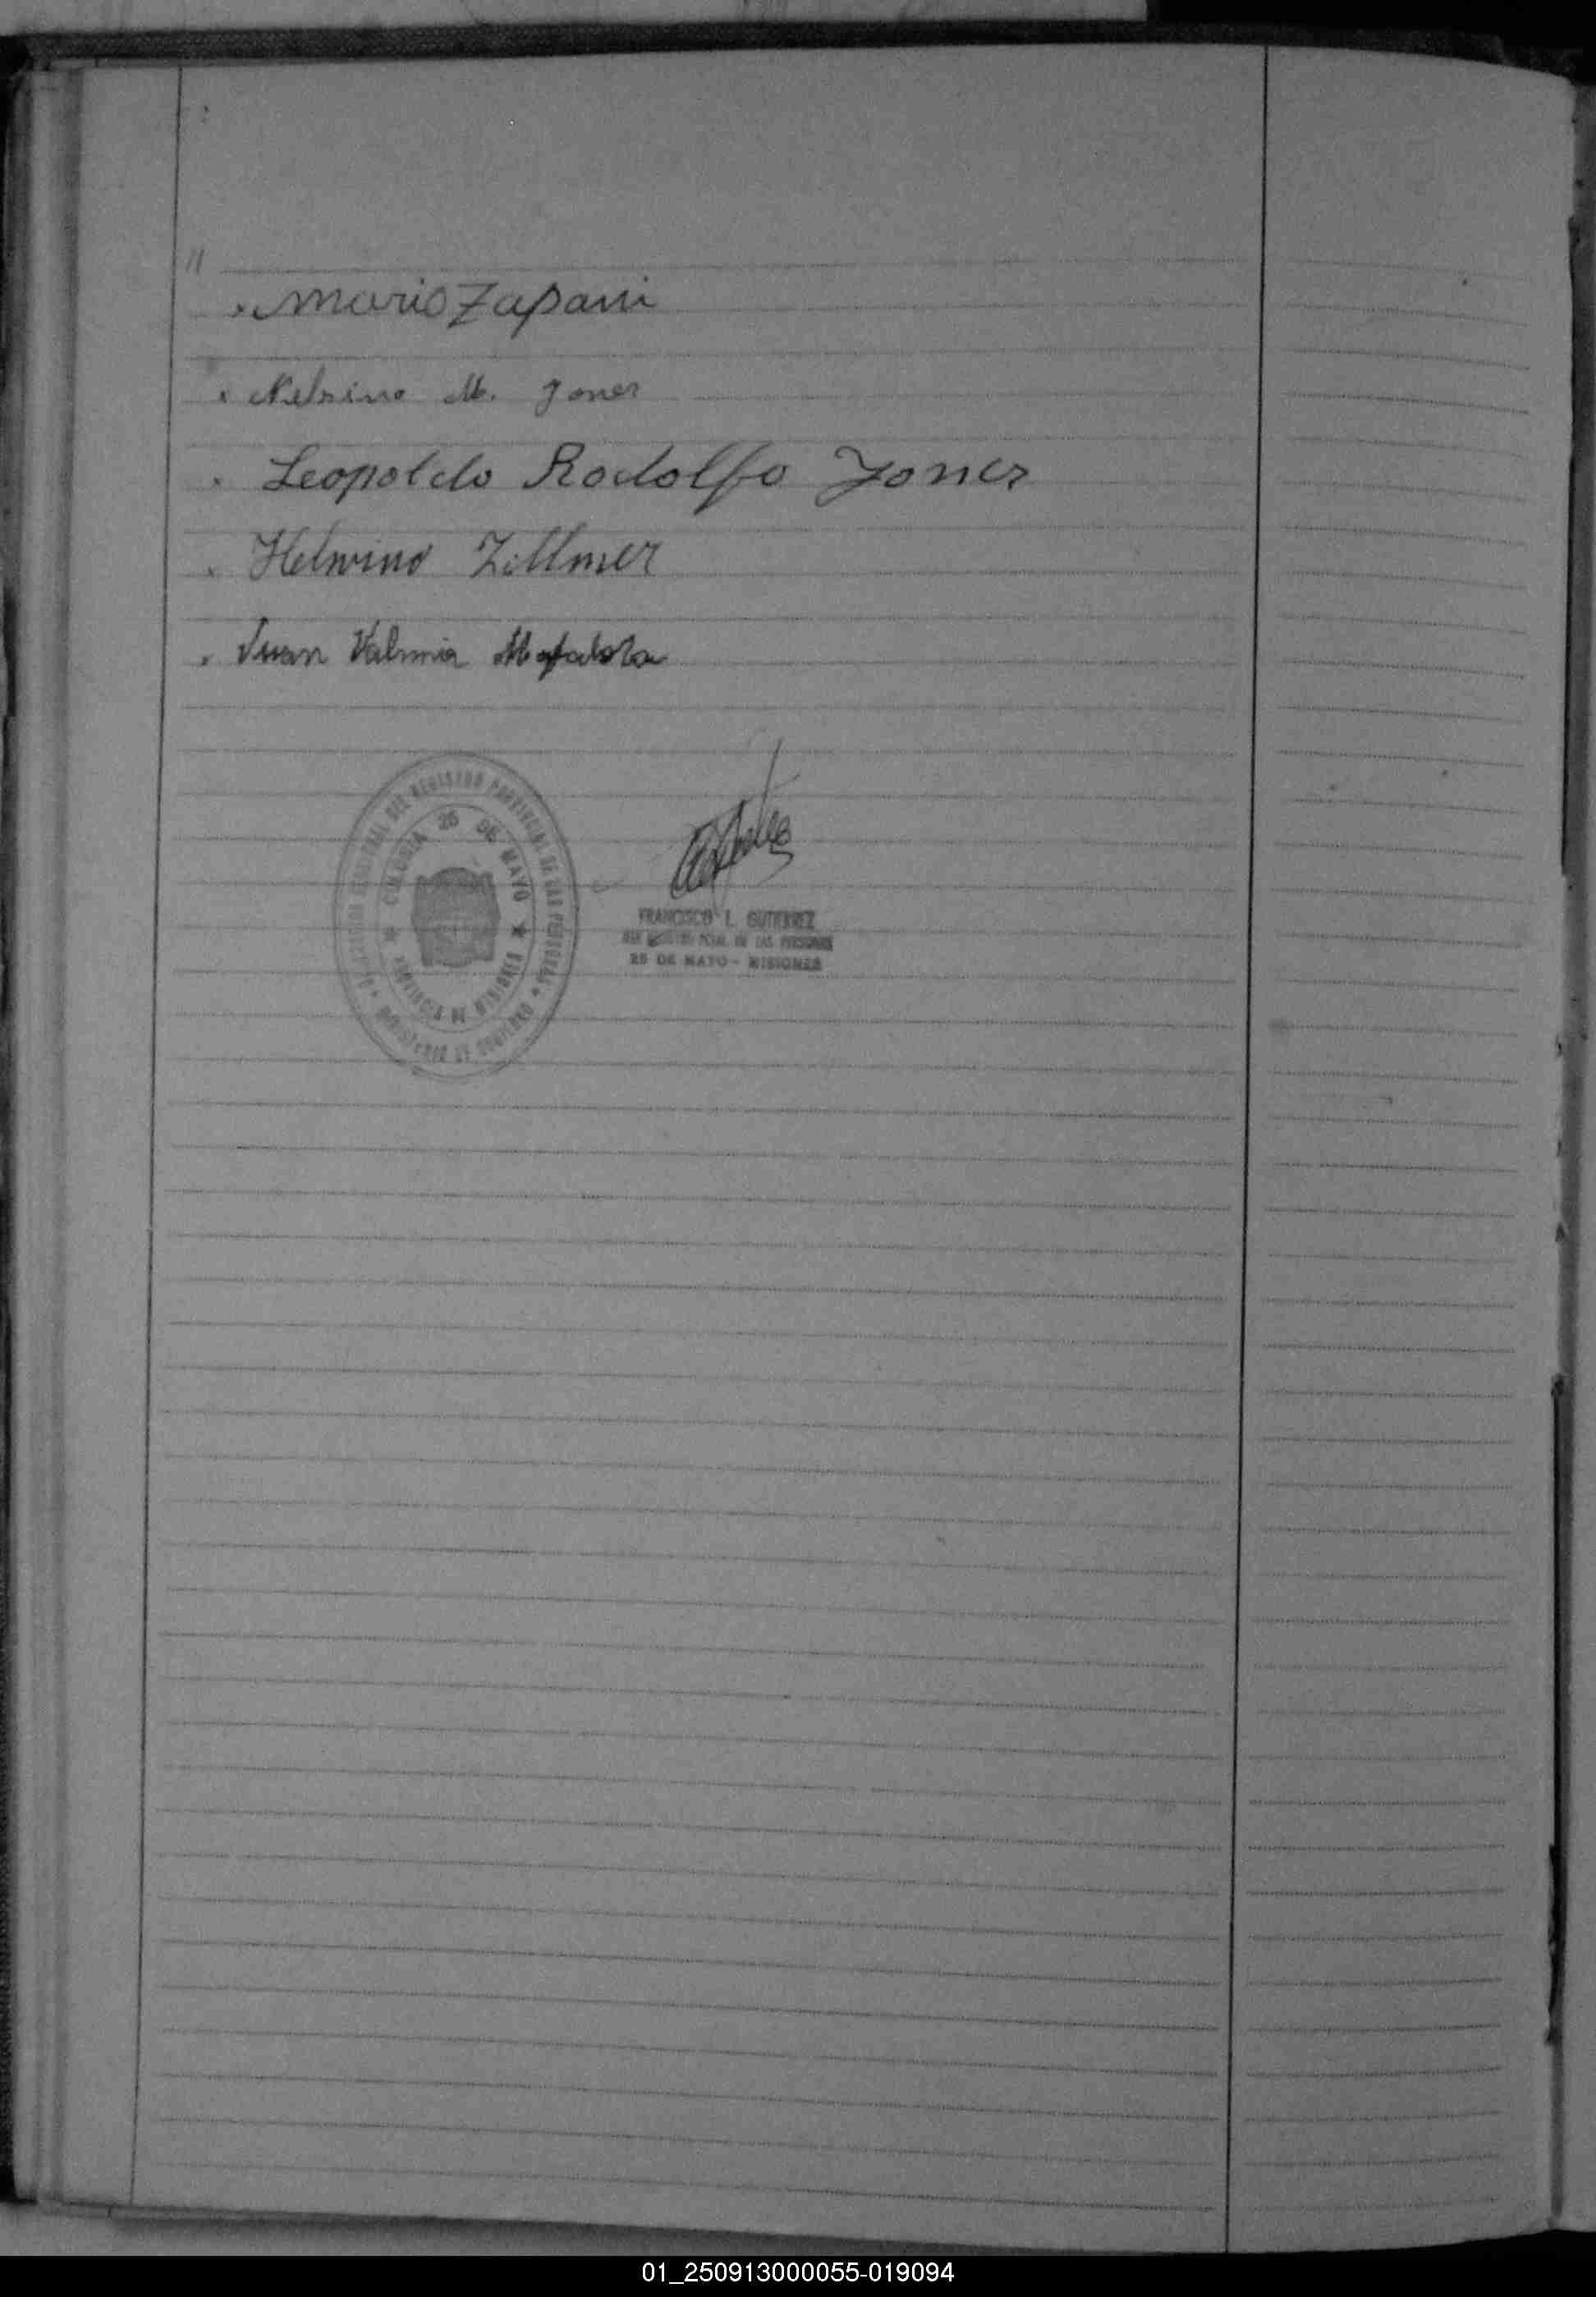 //
. Mario Zapani
. Nelsino M. Joner
. Leopoldo Rodolfo Joner
. Helwino Zillmer
. Juan Valmir
DEL REGISTRO PROVINCIAL DE LAS PERSONAS * MINISTERIO DE GOBIERNO *
COLONIA 25 DE MAYO
PROVINCIA DE MISIONES
FRANCISCO L. GUTIERREZ
PCIAL. DE LAS PERSONAS
25 DE MAYO - MISIONES
01_250913000055-019094